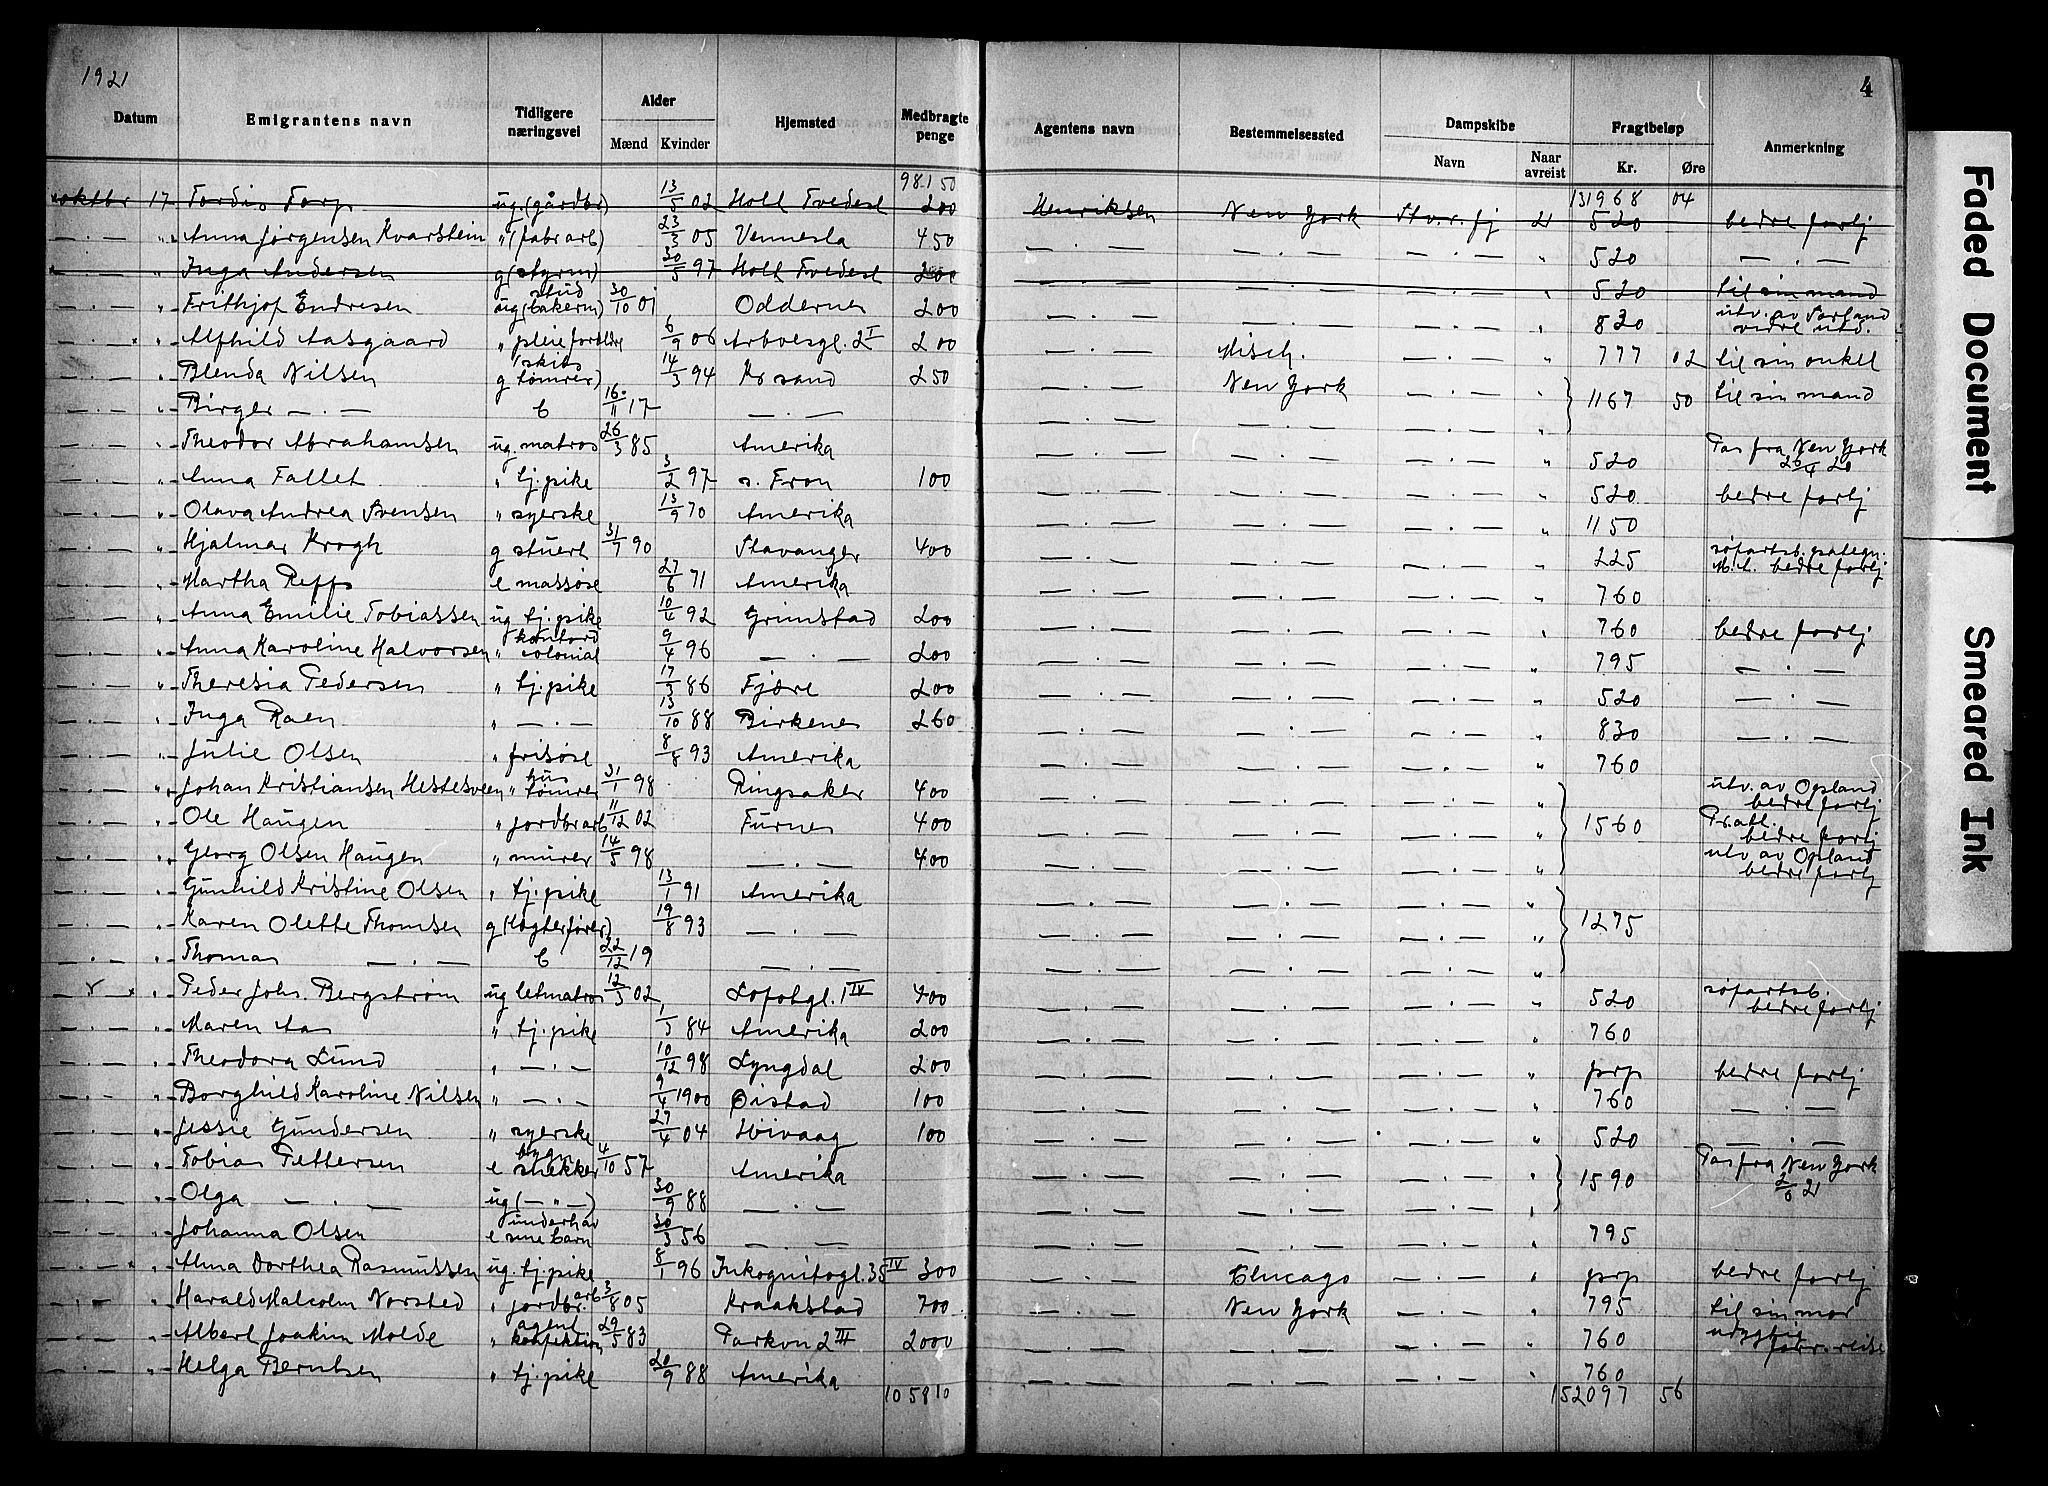 1921
4
Datum Emigrantens navn Tidligere næringsvei Alder Mænd Kvinder Hjemsted Medbragte penge Agentens navn Bestemmelsessted Dampskibe Navn Naar avreist Fragtbeløp Kr. Øre Anmerkning
98150 131968 04
oktbr 17 Tordis Torp ug. (gårdbr) 13/5 02 Holt Tvedest 200 Henriksen New York Stv.r.fj 21 520 bedre forlj
— . — " Anna Jørgensen Kvarstein " (fabr arb) 23/3 05 Vennesla 450 — . — — . — — . — " 520 — . —
— . — " Inga Andersen g (styrm) 30/5 97 Holt Tvedest 200 — . — — . — — . — " 520 til sin mand
— . — " Frithjof Endresen stud ug (bakerm) 30/10 01 Oddernes 200 — . — — . — — . — " 830 utv. av Sørland vidre utd.
— . — " Alfhild Aasgaard " pleieforeldre 6/9 06 Arboesgt. 2 I 200 — . — Misch. — . — " 777 02 til sin onkel
— . — " Blenda Nilsen g skibs tømrer) 14/3 94 Kr sand 250 — . — New York — . — " 1167 50 til sin mand
— . — " Birger — . — b 16/11 17 — . — — . — — . — — . — "
— . — " Theodor Abrahamsen ug. matros 26/3 85 Amerika — . — — . — — . — " 520 Pas fra New York 26/4 20
— . — " Anna Fallet " tj. pike 3/2 97 s. Fron 100 — . — — . — — . — " 520 bedre forlj
— . — " Olava Andrea Svensen " syerske 13/9 70 Amerika — . — — . — — . — " 1150
— . — " Hjalmar Krogh g stuert 31/7 90 Stavanger 400 — . — — . — — . — " 225 søfartsb. bedre forlj
— . — " Martha Repps e massøse 27/6 71 Amerika — . — — . — — . — " 760
— . — " Anna Emilie Tobiassen ug tj. pike 10/4 92 Grimstad 200 — . — — . — — . — " 760 bedre forlj
— . — " Anna Karoline Halvorsen " kontord colonial 9/4 96 — . — 200 — . — — . — — . — " 795 — . —
— . — " Theresia Pedersen " tj. pike 17/3 86 Fjære 200 — . — — . — — . — " 520 — . —
— . — " Inga Raen " — . — 13/10 88 Birkenes 260 — . — — . — — . — " 830 — . —
— . — " Julie Olsen " frisøse 8/8 93 Amerika — . — — . — — . — " 760
— . — " Johan Kristiansen Hestesveen " hus tømrer 31/1 98 Ringsaker 400 — . — — . — — . — " utv. av Opland bedre forlj
— . — " Ole Haugen " jordbrarb 11/12 02 Furnes 400 — . — — . — — . — " 1560 Pr.att. bedre forlj
— . — " Georg Olsen Haugen " murer 14/5 98 — . — 400 — . — — . — — . — " utv av Opland bedre forlj
— . — " Gunhild Kristine Olsen " tj. pike 13/1 91 Amerika — . — — . — — . — "
— . — " Karen Olette Thomsen g (lægterfører) 19/8 93 — . — — . — — . — — . — " 1275
— . — " Thomas — . — b 22/12 19 — . — — . — — . — — . — "
— v — x " Peder Johs. Bergstrøm ug letmatros 12/3 02 Lofotgt. 1 IV 400 — . — — . — — . — " 520 søfartsb. bedre forlj
— . — " Maren Aas " tj. pike 1/3 84 Amerika 200 — . — — . — — . — " 760
— . — " Theodora Lund " — . — 10/12 98 Lyngdal 200 — . — — . — — . — " prp bedre forlj
— . — " Borghild Karoline Nilsen " — . — 9/4 1900 Øistad 100 — . — — . — — . — " 760 — . —
— . — " Jessie Gundersen " syerske 27/4 04 Høivaag 100 — . — — . — — . — " 520 — . —
— . — " Tobias Pettersen e bygn snekker 4/10 57 Amerika — . — — . — — . — " 1590 Pas fra New York 2/6 21
— . — " Olga — . — ug (— " —) 30/9 88 — . — — . — — . — — . — "
— . — " Johanna Olsen e underh av sine barn 30/3 56 — . — — . — — . — — . — " 795
— . — x " Alma Dorthea Rasmussen ug. tj. pike 8/1 96 Inkognitogt. 35 IV 300 — . — Chicago — . — " prp bedre forlj
— . — " Harald Malcolm Norsted " jordbr. arb 3/8 05 Kraakstad 700 — . — New York — . — " 795 til sin mor
— . — " Albert Joakim Molde " agent konfektion 29/5 83 Parkvn 2 III 2000 — . — — . — — . — " 760 forr. reise
— . — " Helga Berntsen " tj. pike 20/9 88 Amerika — . — — . — — . — " 760
105810 152097 56
Faded Document
Smeared Ink